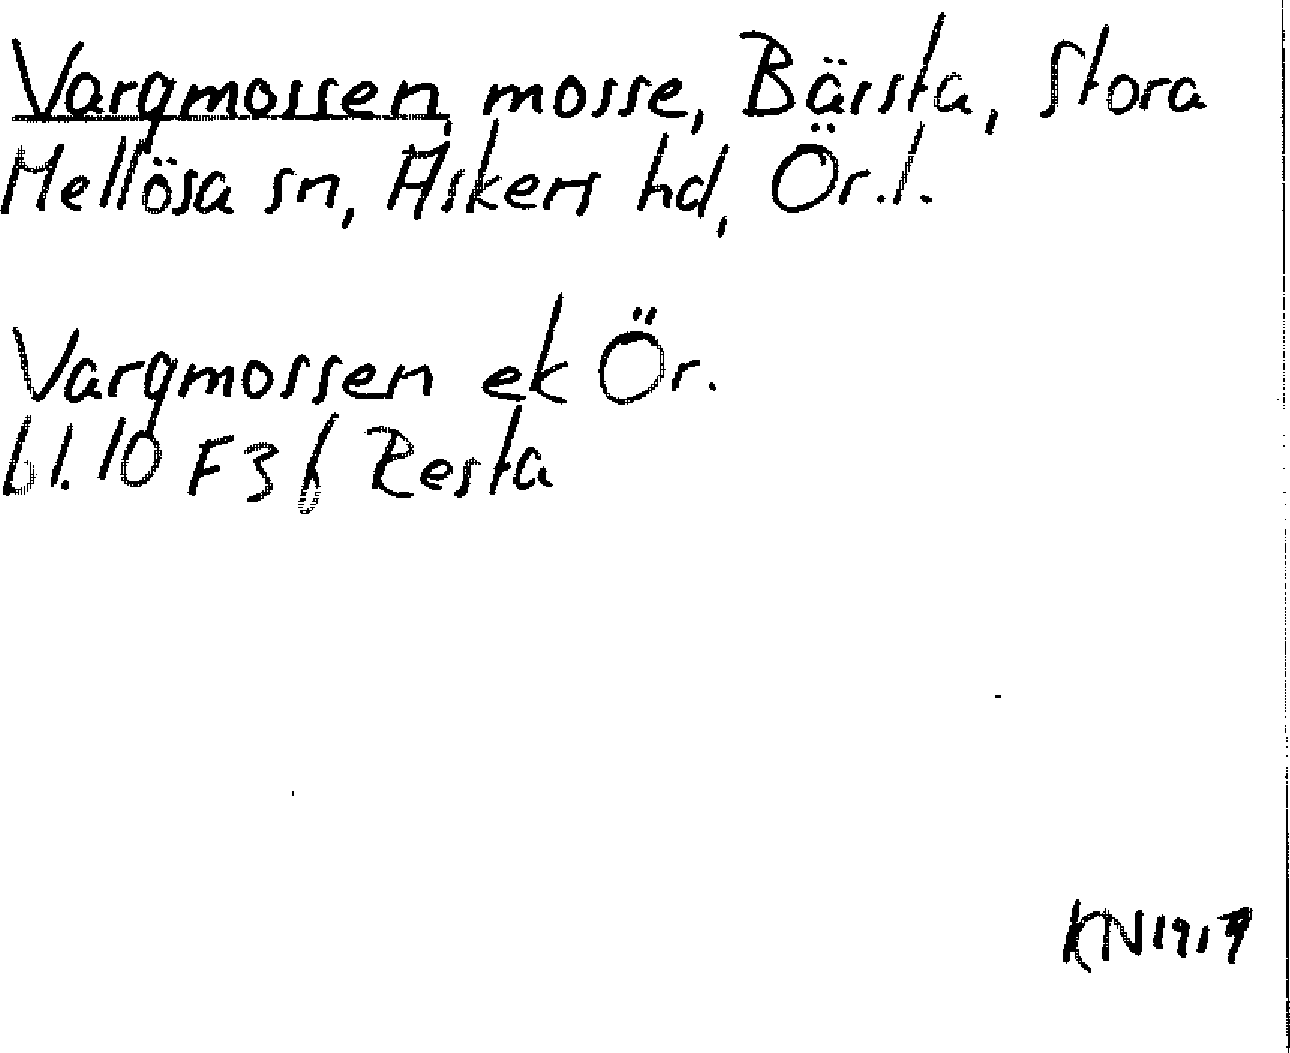 Vargmossen, mosse, Bärsta, Stora
Mellösa sn, Askers hd, Ör.l.
Vargmossen ek Ör.
bl. 10 F 3 f Resta
KN 1917